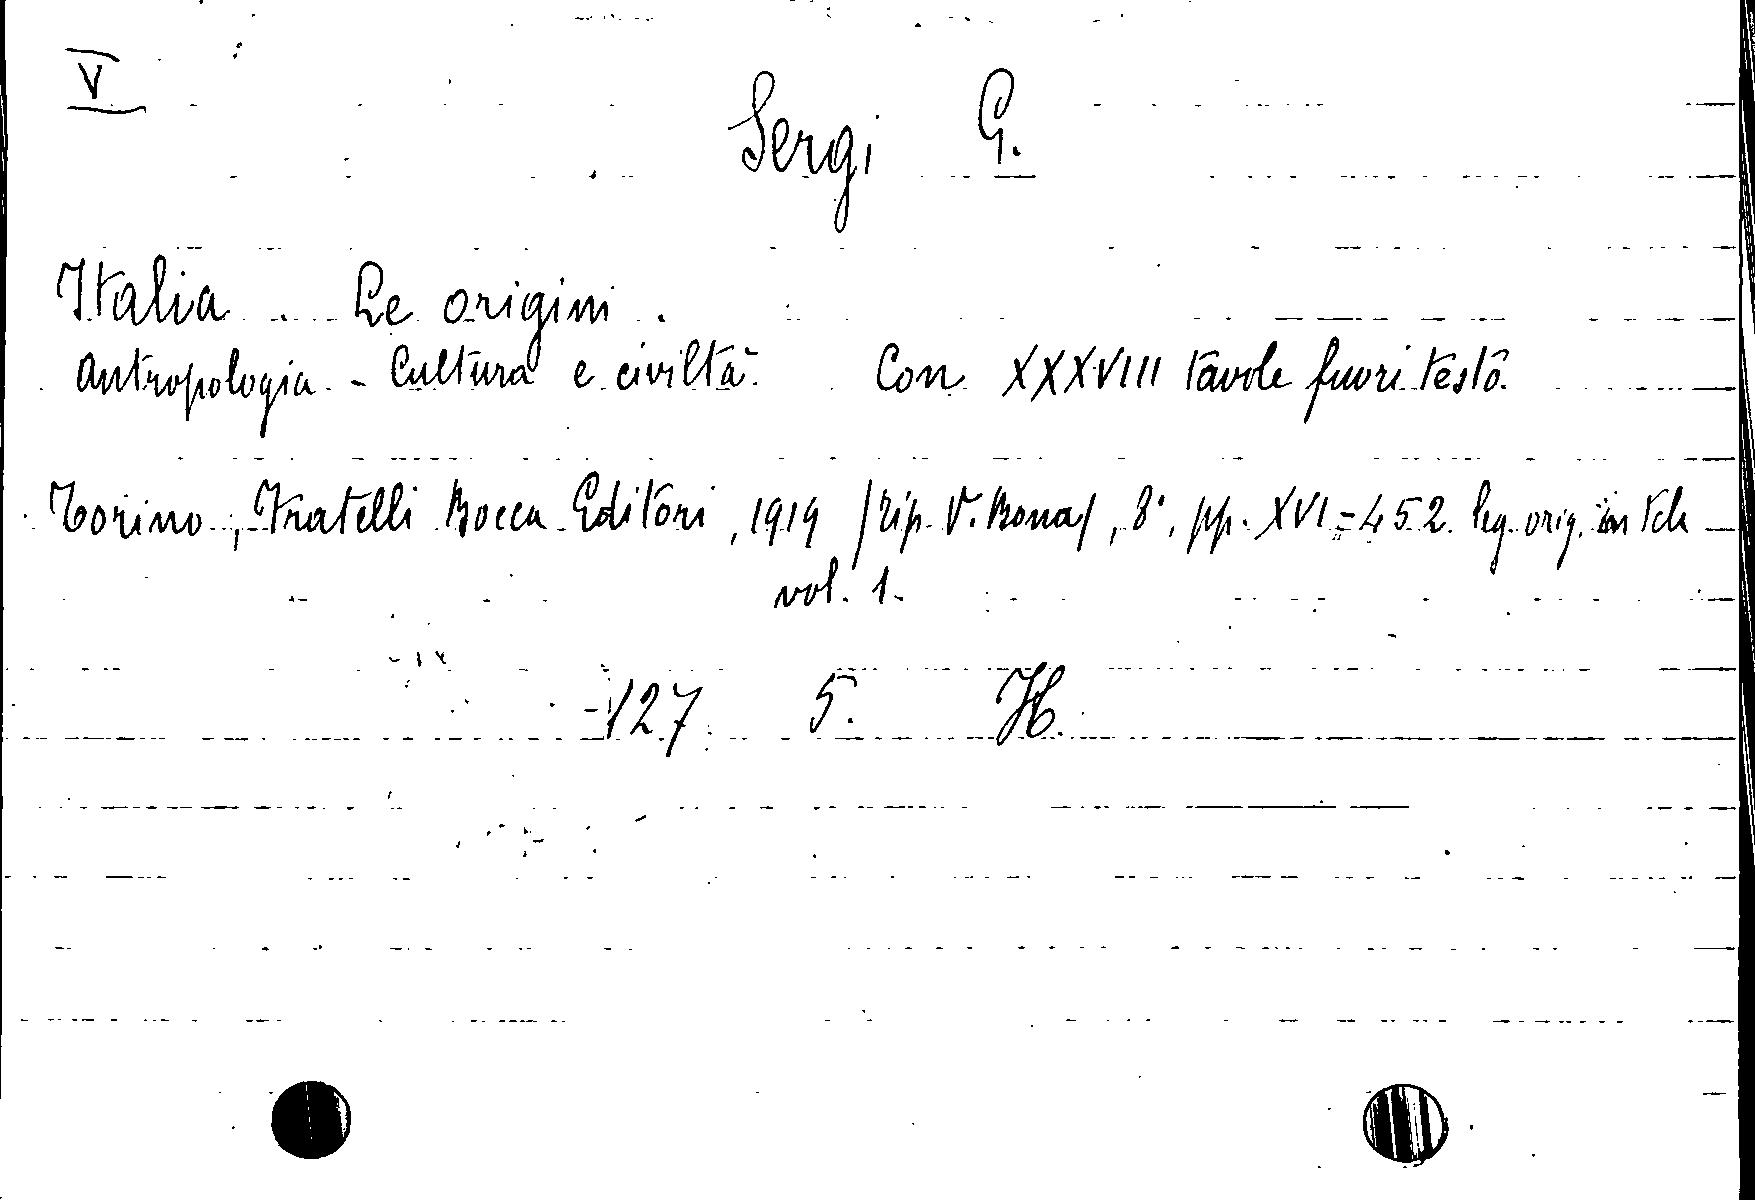 V
Sergi G.
Italia. Le origini.
Antropologia - Cultura e civiltà. Con XXXVIII tavole fuori testo.
Torino, Fratelli Bocca Editori, 1919 /tip. V. Bona/, 8°, pp. XVI-452. leg. orig. in tela
vol. 1.
127 5. H.